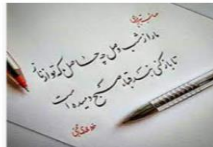 صائب تبریزی
ما را ز شب وصل چه حاصل که تو از ناز
تا باز کنی بند قبا صبح دمیده است